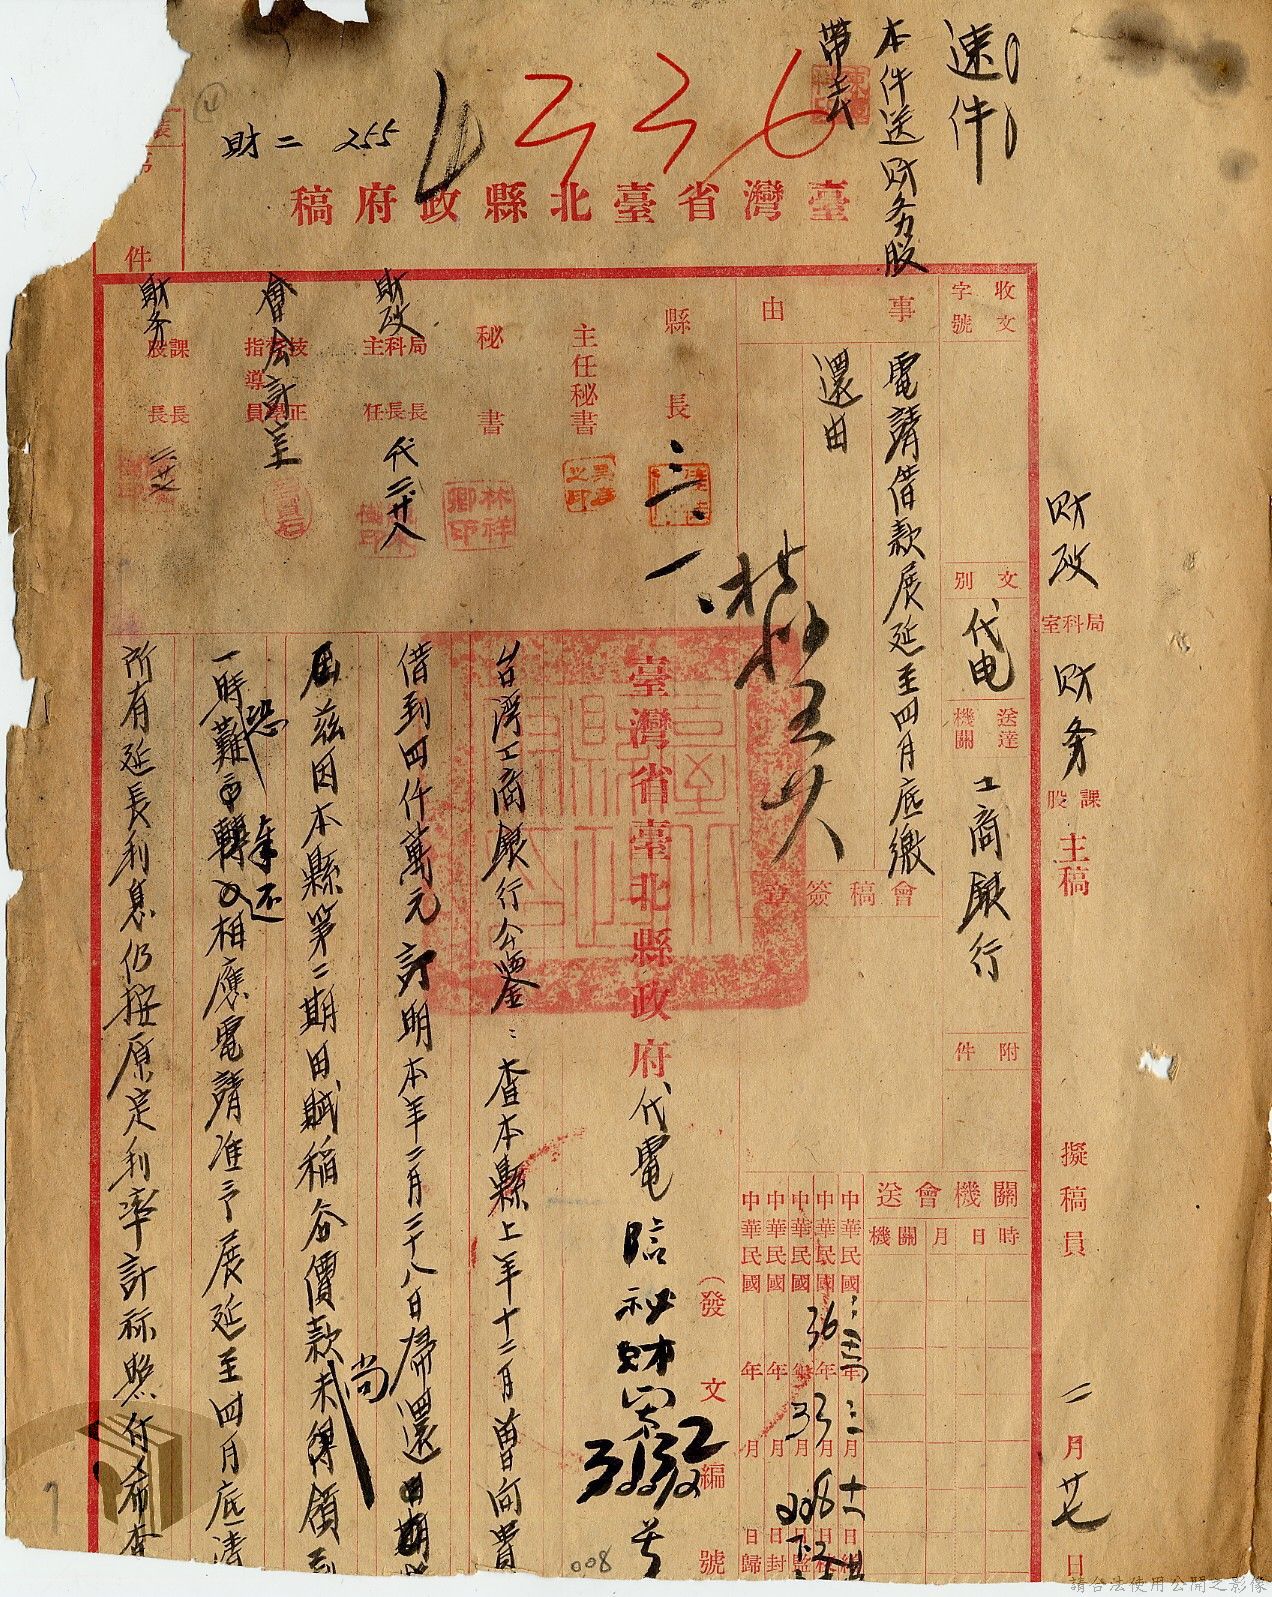 速件
本件送財务股
帶走
6336
財二 255
臺灣省臺北縣政府稿
件
收文
字號
文別
代电
送達機關
工商銀行
附件
事由
電請借款展延至四月底繳
還由
會稿簽章
縣長
三、一、
主任秘書
秘書
林祥卿印
財政
局科主
長長任
代 二、廿八
會会計室
技正
指導員
財务
課股
長長
二廿七
財政
局科室
財务
課股
主稿
擬稿員
二月廿七日
關機會送
時 日 月 關機
中華民國 年 月 日
中華民國36年3月 日
中華民國 年 月 日
中華民國 年 月 日封
中華民國 年 月 日歸
(發文編號
臺灣省臺北縣政府代電 臨祕財 号
台湾工商銀行公鑒：查本縣上年十二月曾向貴
借到四仟萬元訂明本年二月二十八日歸還
屆茲因本縣第二期田賦稻谷價款尚未得領到
一時恐難 相應電請准予展延至四月底清
所有延長利息仍按原定利率計祘照付希查
008
請合法使用公開之影像